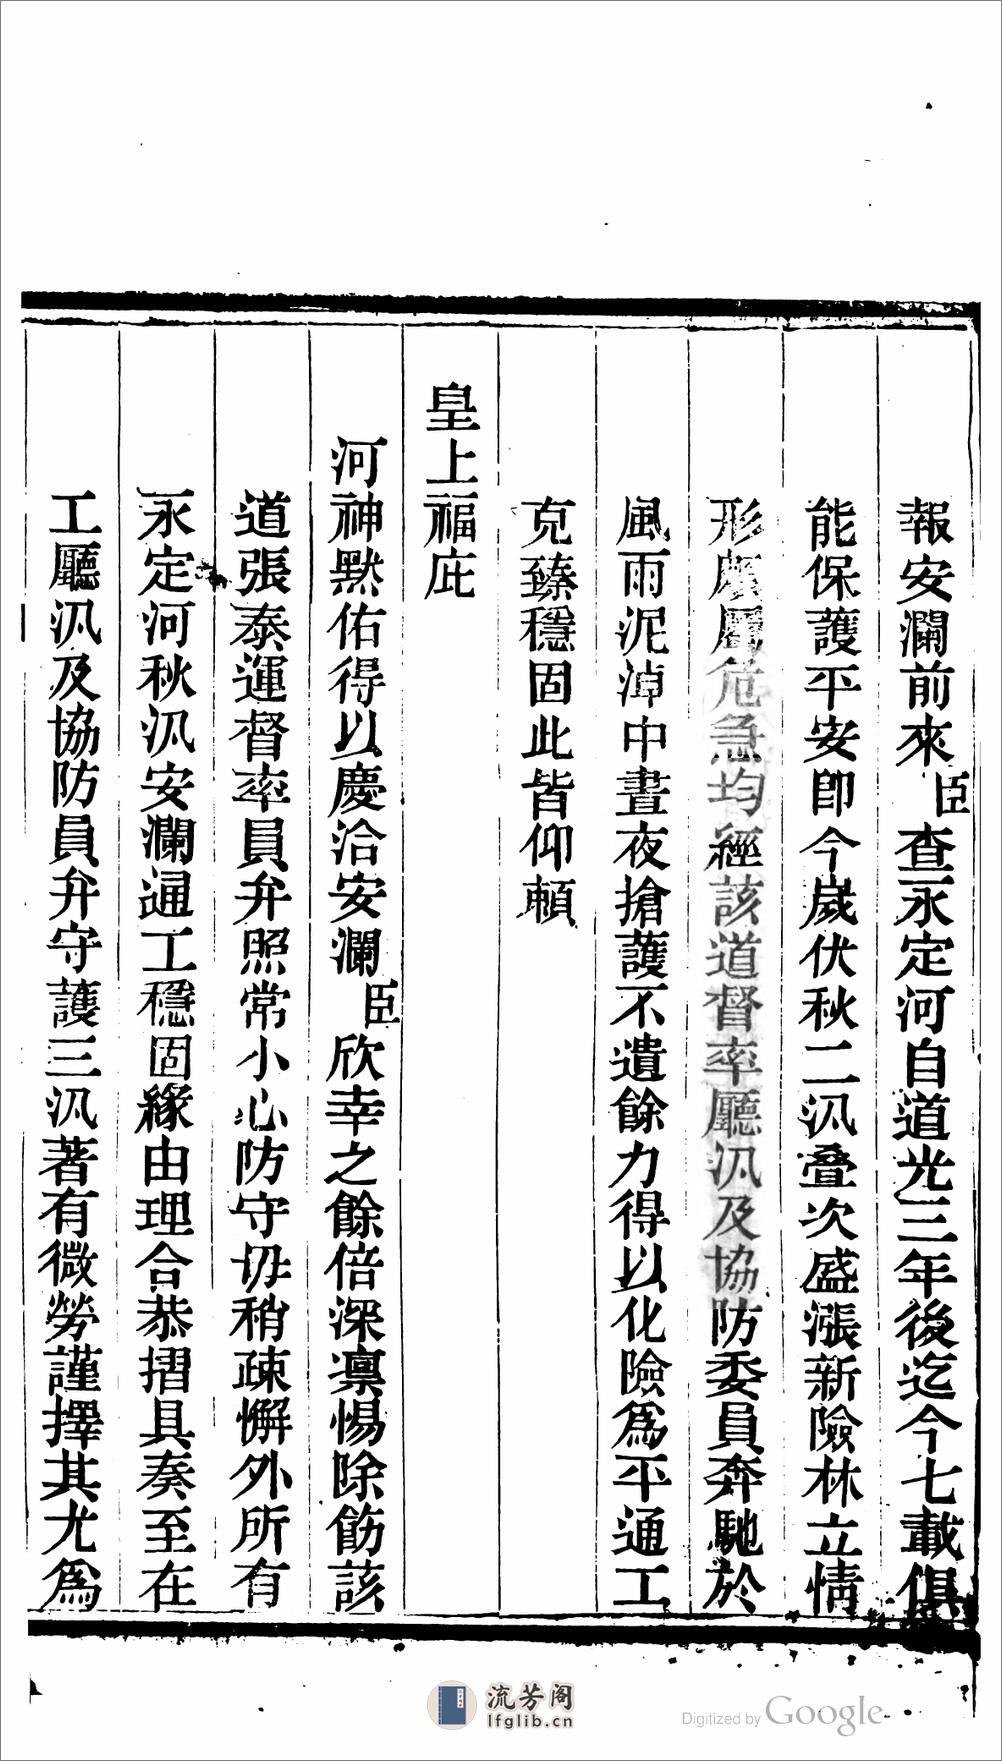 報安瀾前來臣查永定河自道光三年後迄今七載俱
能保護平安卽今歲伏秋二汛疊次盛漲新險林立情
形屢屬危急均經該道督率廳汛及協防委員奔馳於
風雨泥淖中晝夜搶護不遺餘力得以化險爲平通工
克臻穩固此皆仰賴
皇上福庇
河神默佑得以慶洽安瀾臣欣幸之餘倍深凛惕除飭該
道張泰運督率員弁照常小心防守毋稍疎懈外所有
永定河秋汛安瀾通工穩固緣由理合恭摺具奏至在
工廳汛及協防員弁守護三汛著有微勞謹擇其尤爲
流芳阁
lfglib.cn
Digitized by Google